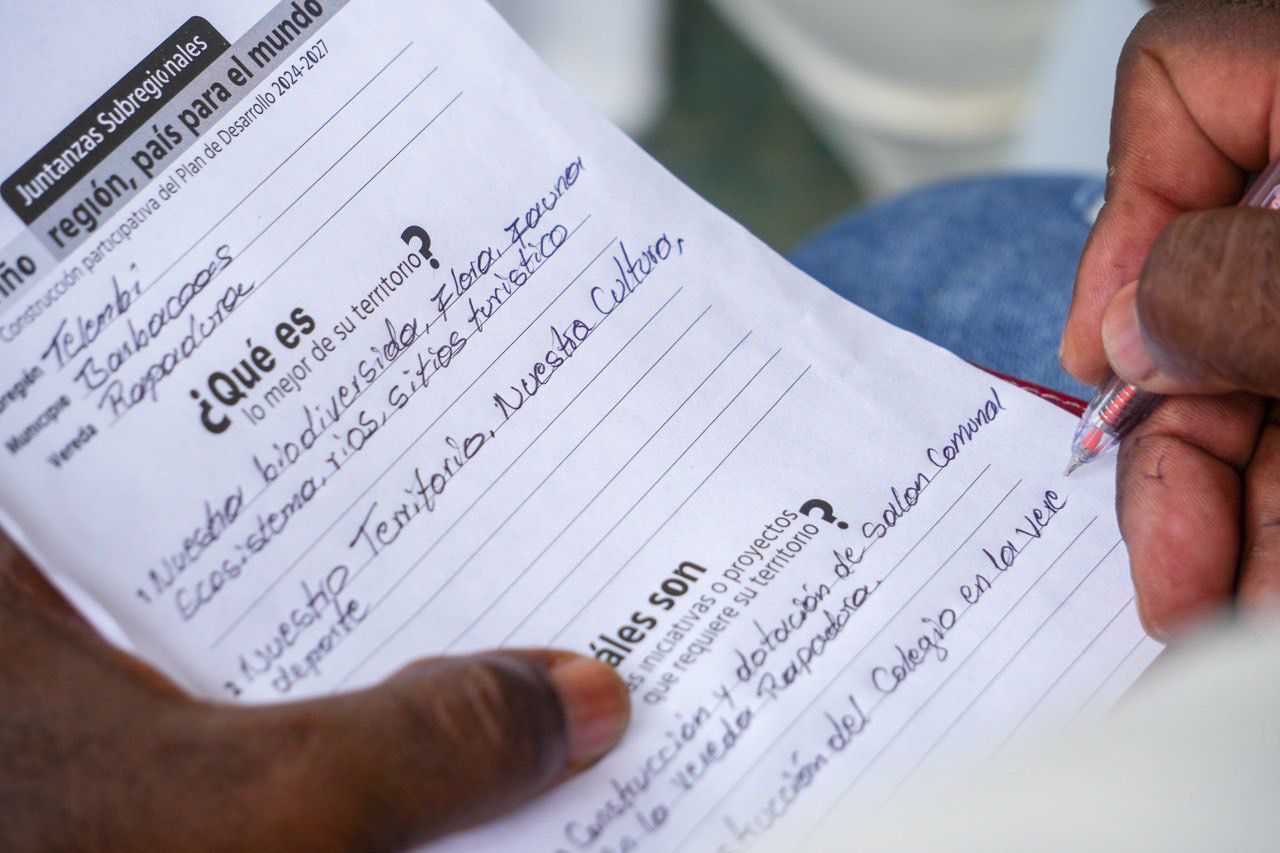 Juntanzas Subregionales
región, país para el mundo
Construcción participativa del Plan de Desarrollo 2024-2027
Telembi
Municipio Barbacoas
Vereda Rapadura
¿Qué es
lo mejor de su territorio?
1 Nuestra biodiversida, Flora, Fauna
Ecosistema, rios, sitios turistico
2 Nuestro Territorio, Nuestra Cultura,
deporte
iniciativas o proyectos
que requiere su territorio?
Construcción y dotación de Salon Comunal
la vereda Rapadura.
del Colegio en la Vere